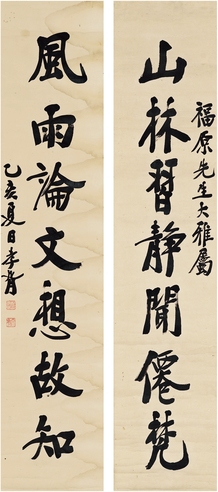 福原先生大雅屬
山林習靜聞僊梵
風雨論文想故知
乙亥夏日孝胥